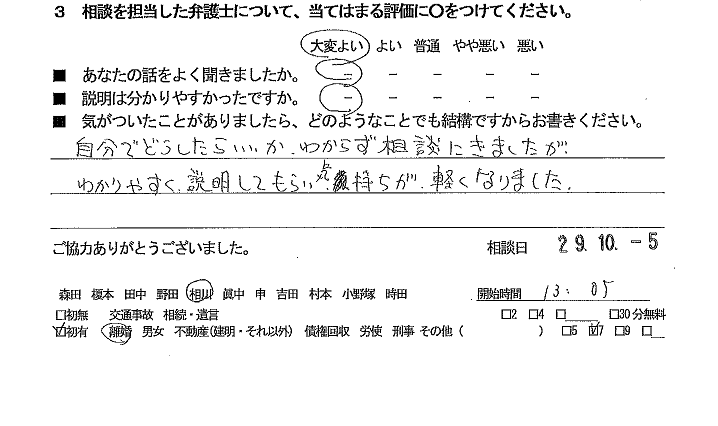 3 相談を担当した弁護士について、当てはまる評価に○をつけてください。
大変よい よい 普通 やや悪い 悪い
■ あなたの話をよく聞きましたか。 － － － － －
■ 説明は分かりやすかったですか。 － － － － －
■ 気がついたことがありましたら、どのようなことでも結構ですからお書きください。
自分でどうしたらいいか、わからず相談にきましたが、
わかりやすく、説明してもらい 気持ちが、軽くなりました。
ご協力ありがとうございました。 相談日 29.10.-5
森田 榎本 田中 野田 相川 眞中 申 吉田 村本 小野塚 時田 開始時間 13:05
□初無 交通事故 相続・遺言 □2 □4 □ □30分無料
☑初有 離婚 男女 不動産(建明・それ以外) 債権回収 労使 刑事 その他 ( ) □5 ☑7 □9 □